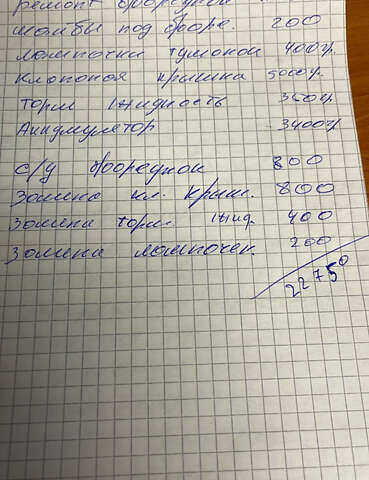 ремонт форсунок
шайбы под форс. 200
лампочки туманок 400гр.
клапоная крышка 5000гр.
торм жидкость 350гр.
Аккумулятор 3400гр
с/у форсунок 800
Замена кл. крыш. 800
Замена торм. жид. 400
Замена лампочек. 200
22750